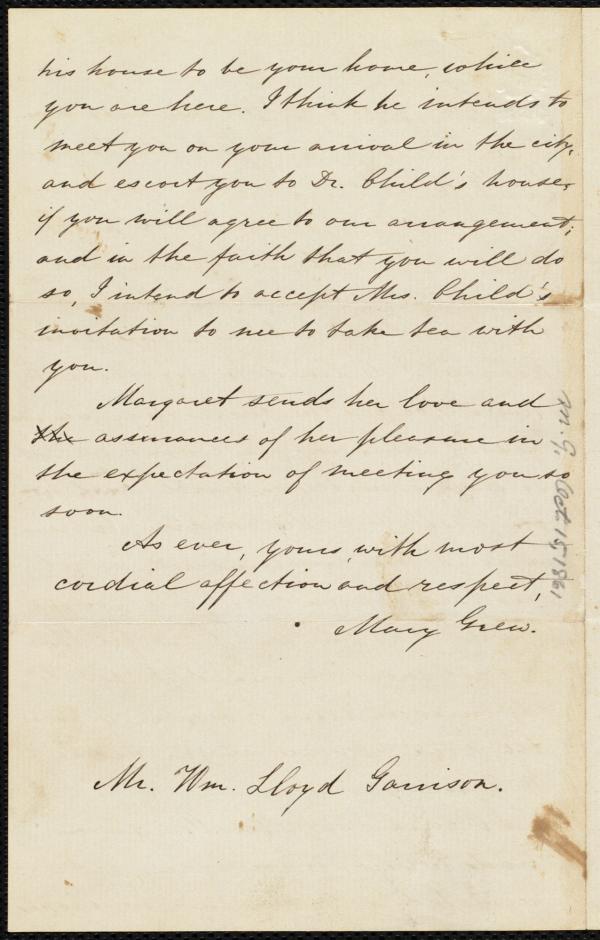 his house to be your home, while
you are here. I think he intends to
meet you on your arrival in the city,
and escort you to Dr. Child's house,
if you will agree to our arrangement;
and in the faith that you will do
so, I intend to accept Mrs. Child's
invitation to me to take tea with
you.
Margaret sends her love and
the assurances of her pleasure in
the expectation of meeting you so
soon.
As ever, yours, with most
cordial affection and respect,
Mary Grew.
Mr. Wm. Lloyd Garrison.
M. G. Oct 15, 1861